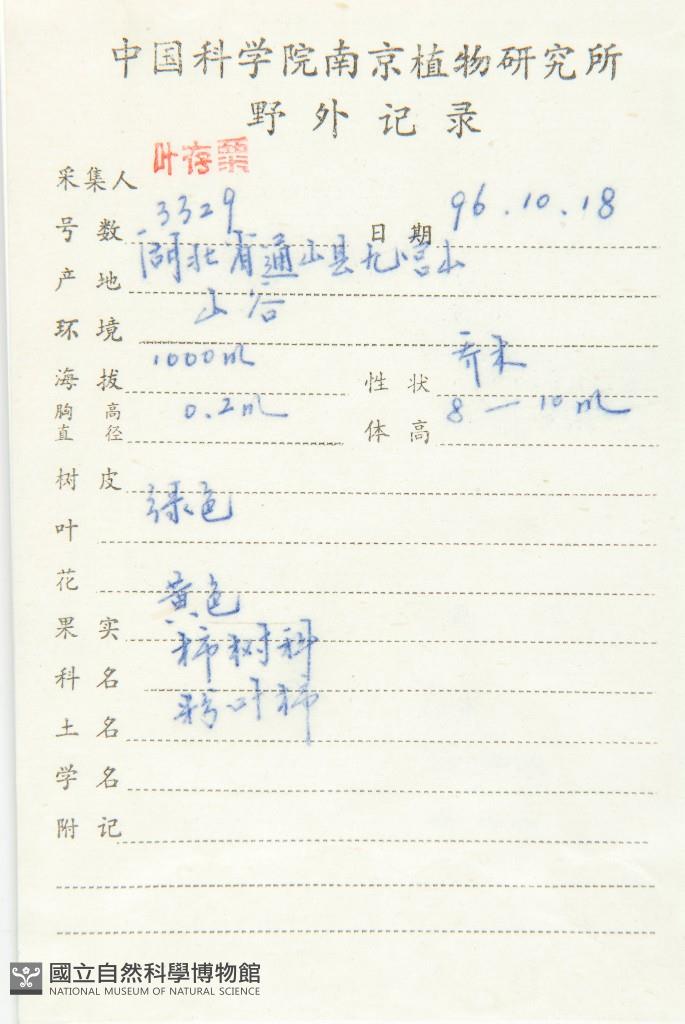 中国科学院南京植物研究所
野外记录
采集人 叶存粟
号数 3329 日期 96.10.18
产地 湖北省通山县九宫山
环境 山谷
海拔 1000m 性状 乔木
胸高直径 0.2m 体高 8—10m
树皮
叶 绿色
花
果实 黄色
科名 柿树科
土名 粉叶柿
学名
附记
國立自然科學博物館
NATIONAL MUSEUM OF NATURAL SCIENCE